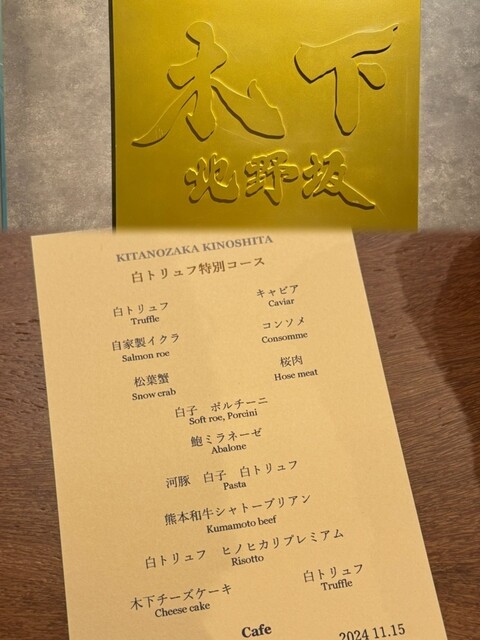 木下
北野坂
KITANOZAKA KINOSHITA
白トリュフ特別コース
白トリュフ
Truffle
キャビア
Caviar
自家製イクラ
Salmon roe
コンソメ
Consomme
松葉蟹
Snow crab
桜肉
Hose meat
白子 ポルチーニ
Soft roe, Porcini
鮑ミラネーゼ
Abalone
河豚 白子 白トリュフ
Pasta
熊本和牛シャトーブリアン
Kumamoto beef
白トリュフ ヒノヒカリプレミアム
Risotto
木下チーズケーキ
Cheese cake
白トリュフ
Truffle
Cafe
2024 11.15